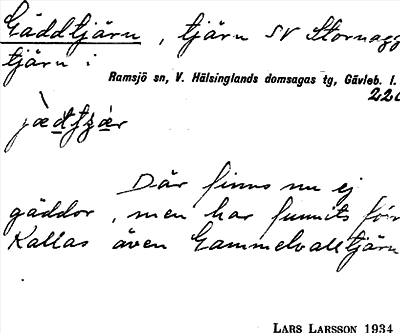 Gäddtjärn, tjärn SV Stornagg
tjärn i
Ramsjö sn, V. Hälsinglands domsagas tg, Gävleb. l.
22
Där finns nu ej
gäddor, men har funnits för
Kallas även Gammelvalltjärn
LARS LARSSON 1934